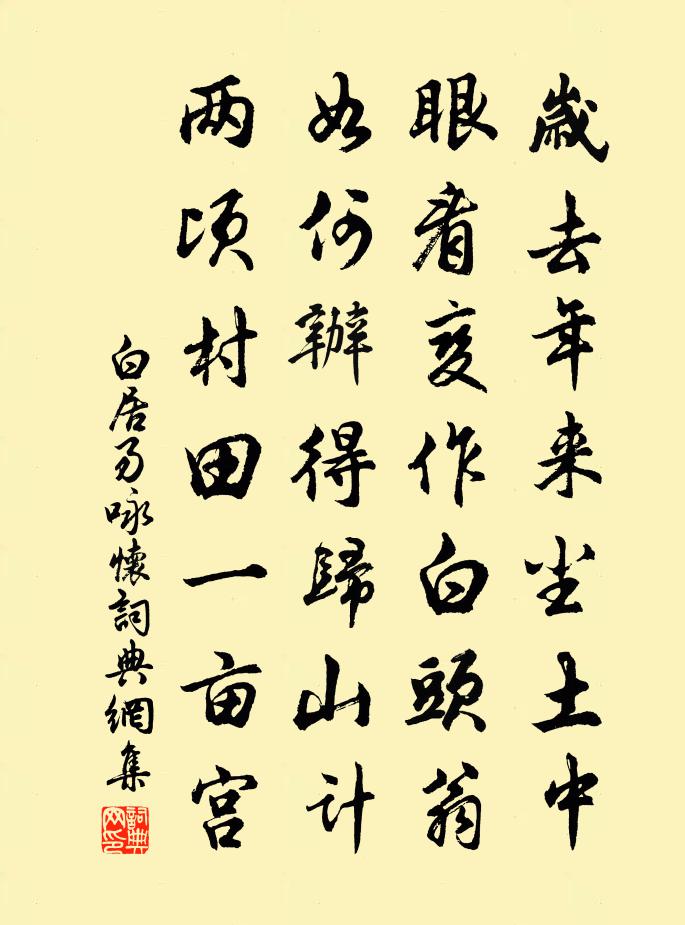 歲去年来尘土中
眼看变作白頭翁
如何辦得歸山计
两顷村田一亩宫
白居易咏懷詞典網集
詞典网印